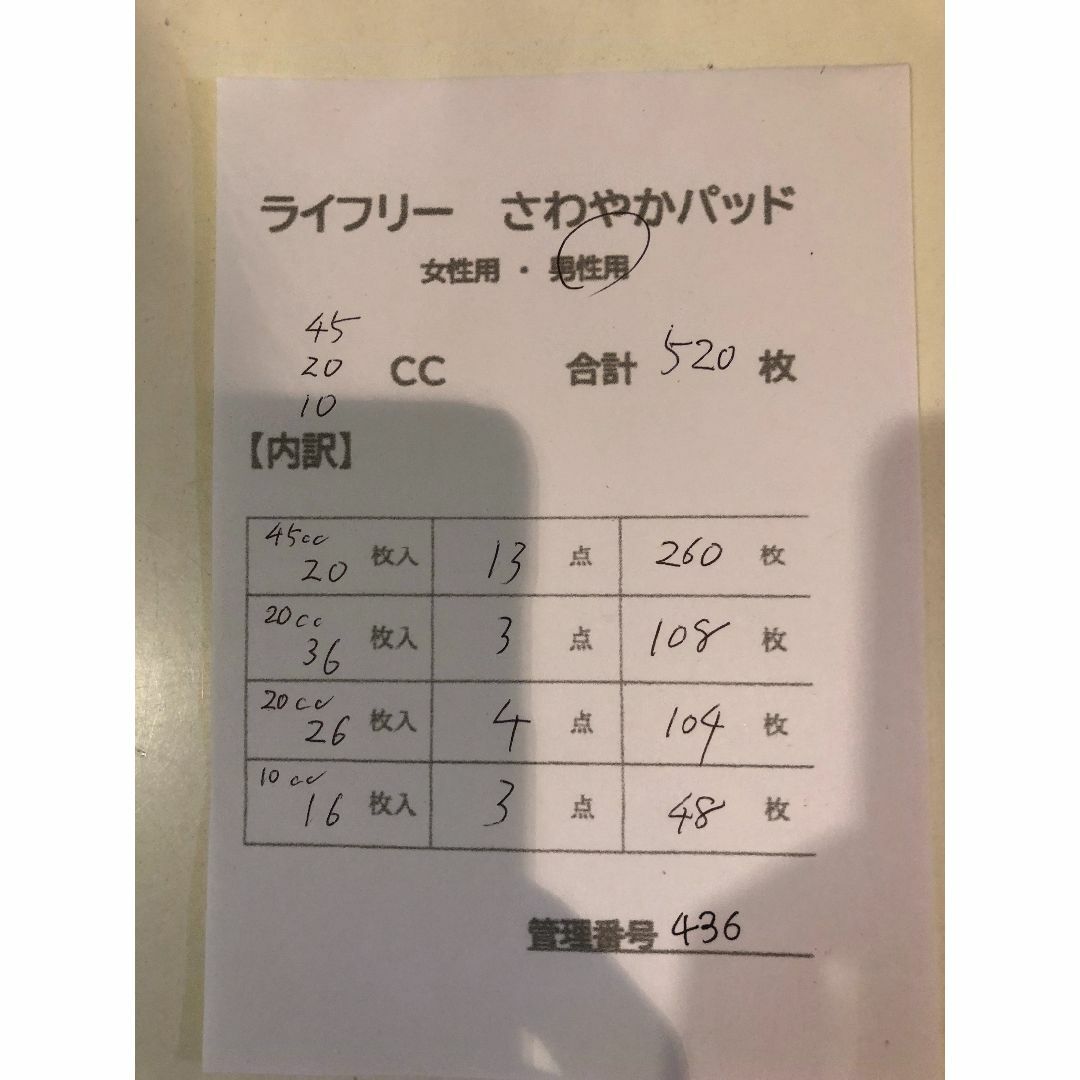 ライフリー さわやかパッド
女性用 ・ 男性用
45
20 CC 合計 520 枚
10
【内訳】
45cc
20 枚入 13 点 260 枚
20cc
36 枚入 3 点 108 枚
20cc
26 枚入 4 点 104 枚
10cc
16 枚入 3 点 48 枚
管理番号 436